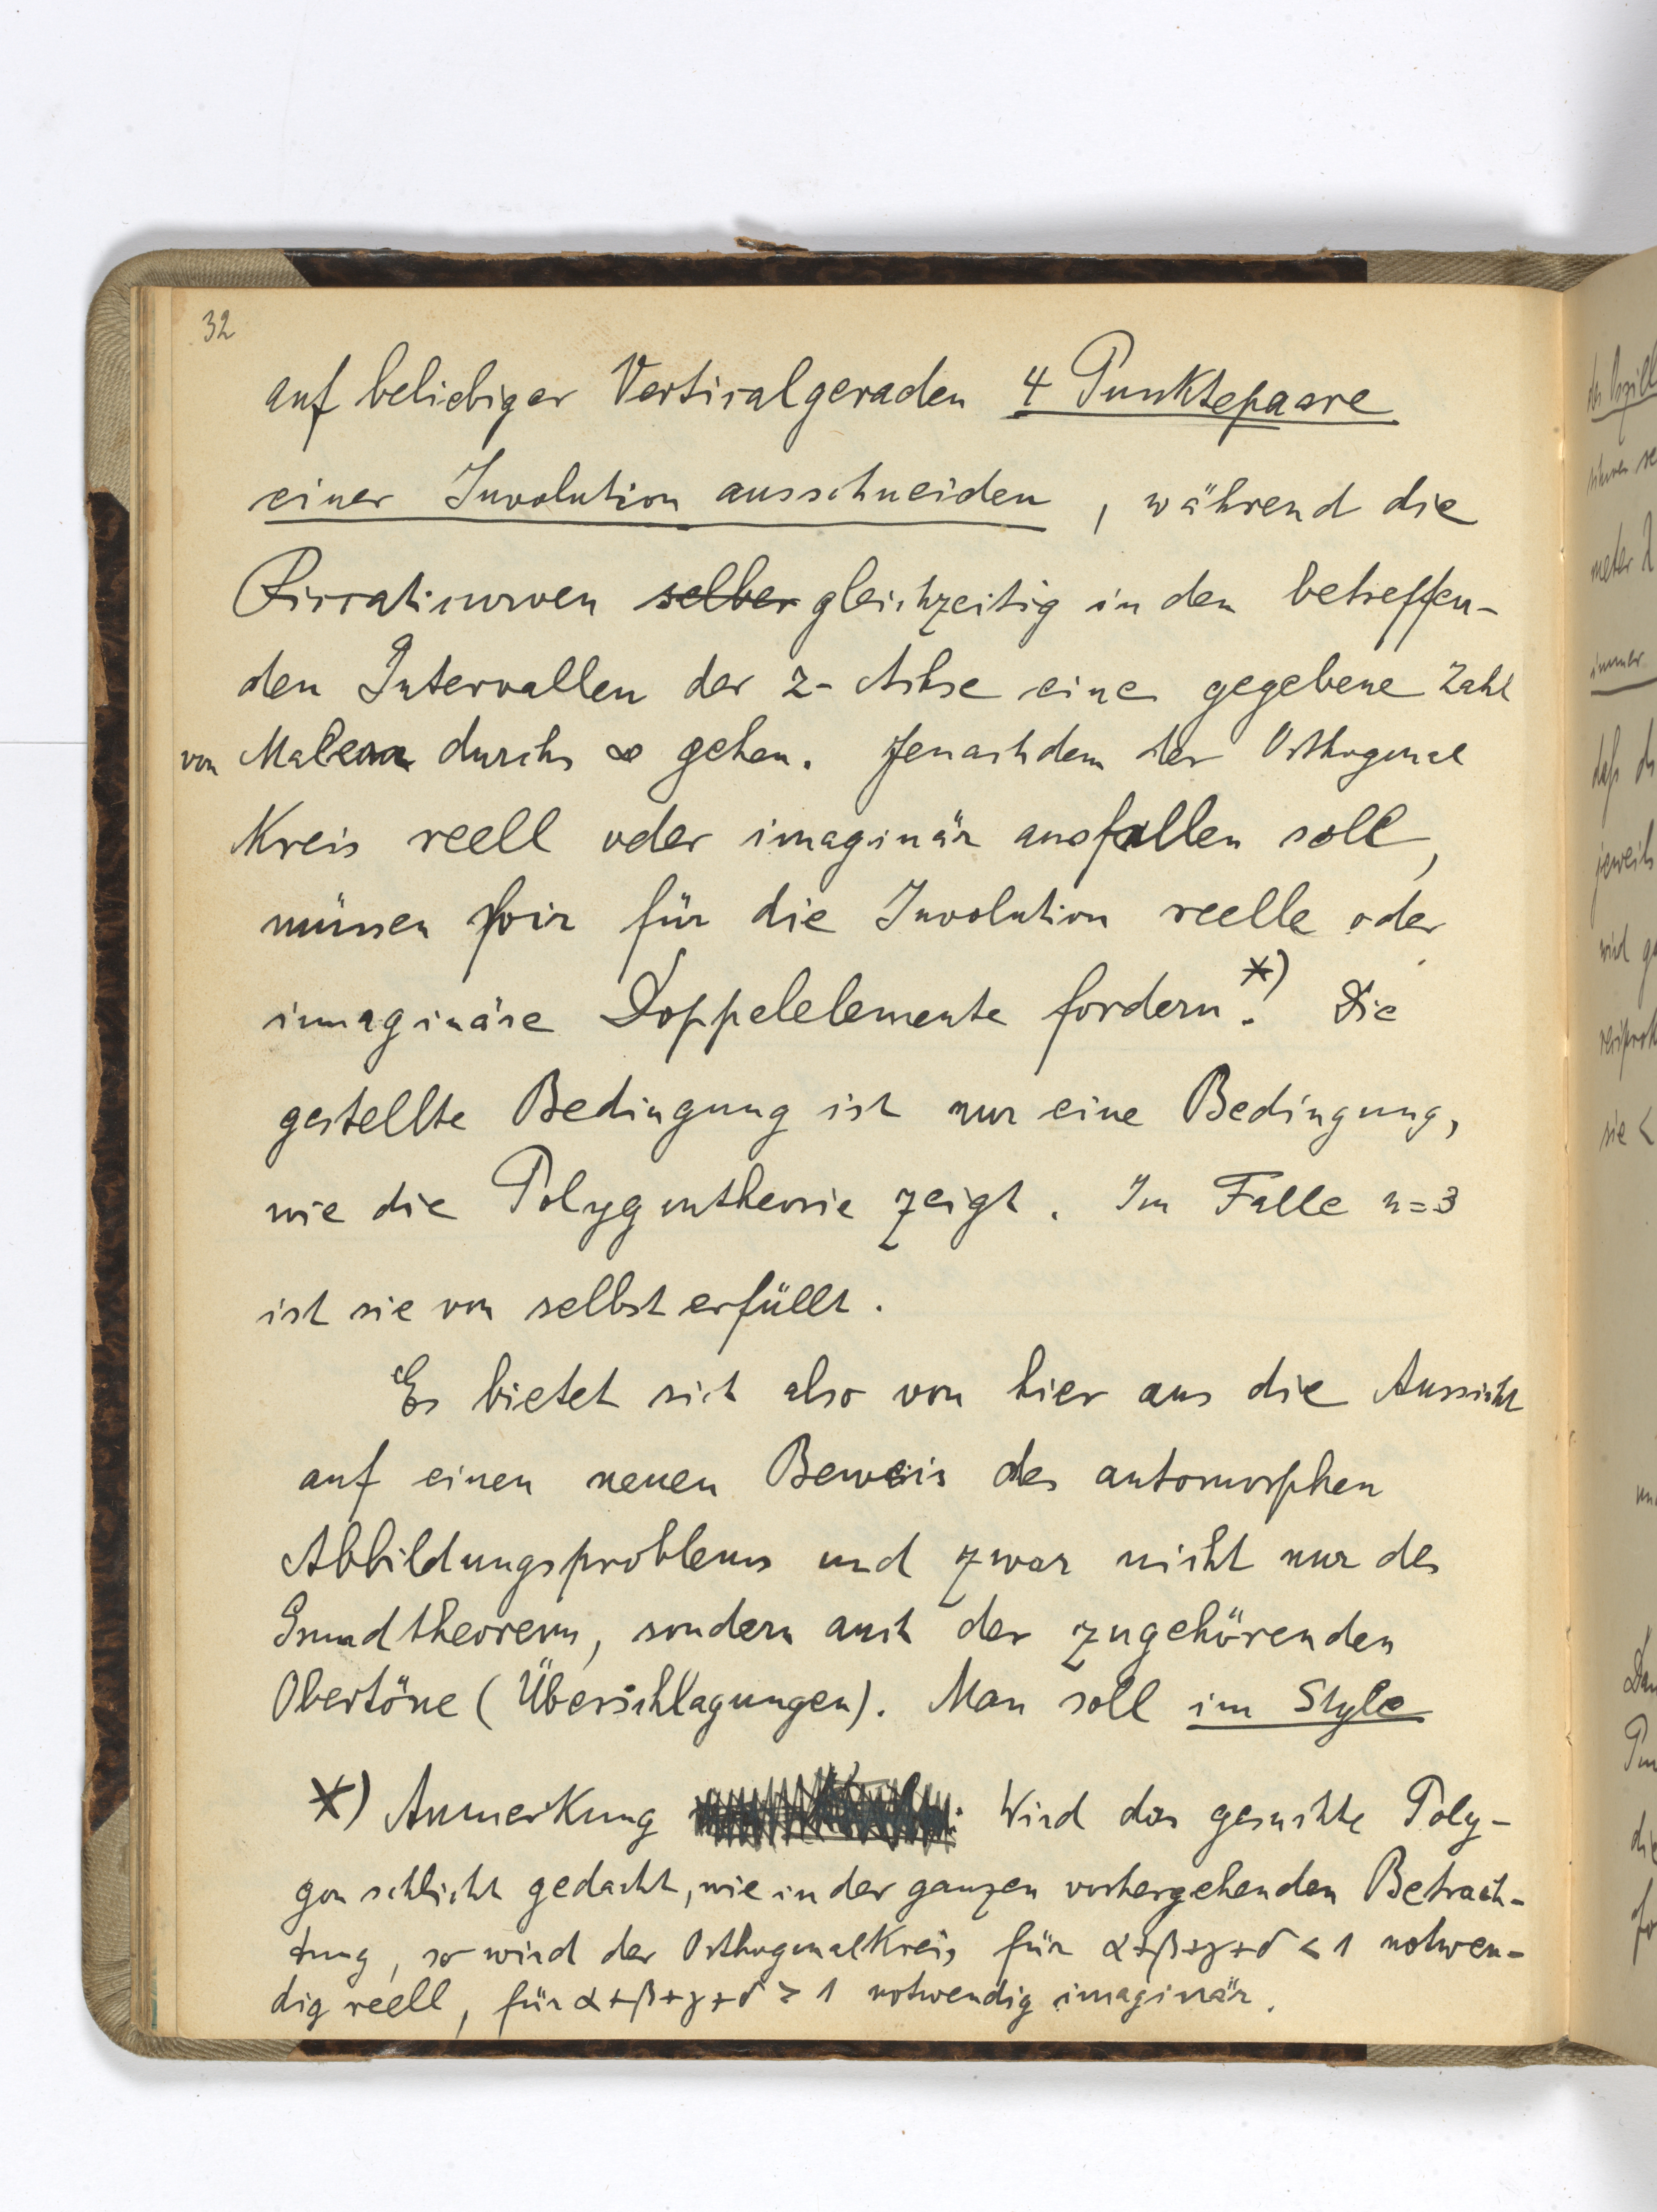 32
auf beliebiger Verticalgeraden 4 Punktepaare
einer Involution ausschneiden, während die
Riccaticurven selber gleichzeitig in den betreffen-
den Intervallen der z-Achse eine gegebene Zahl
von Malen durchs ∞ gehen. Jenachdem der Orthogonal
Kreis reell oder imaginär ausfallen soll,
müssen wir für die Involution reelle oder
imaginäre Doppelelemente fordern.*) Die
gestellte Bedingung ist nur eine Bedingung,
wie die Polygontheorie zeigt. Im Falle n=3
ist sie von selbst erfüllt.
Es bietet sich also von hier aus die Aussicht
auf einen neuen Beweis des automorphen
Abbildungsproblems und zwar nicht nur des
Grundtheorems, sondern auch der zugehörenden
Obertöne (Überschlagungen). Man soll im Style
*) Anmerkung : Wird das gesuchte Poly-
gon schlicht gedacht, wie in der ganzen vorhergehenden Betrach-
tung, so wird der Orthogonalkreis für α+β+γ+δ < 1 notwen-
dig reell, für α+β+γ+δ > 1 notwendig imaginär.